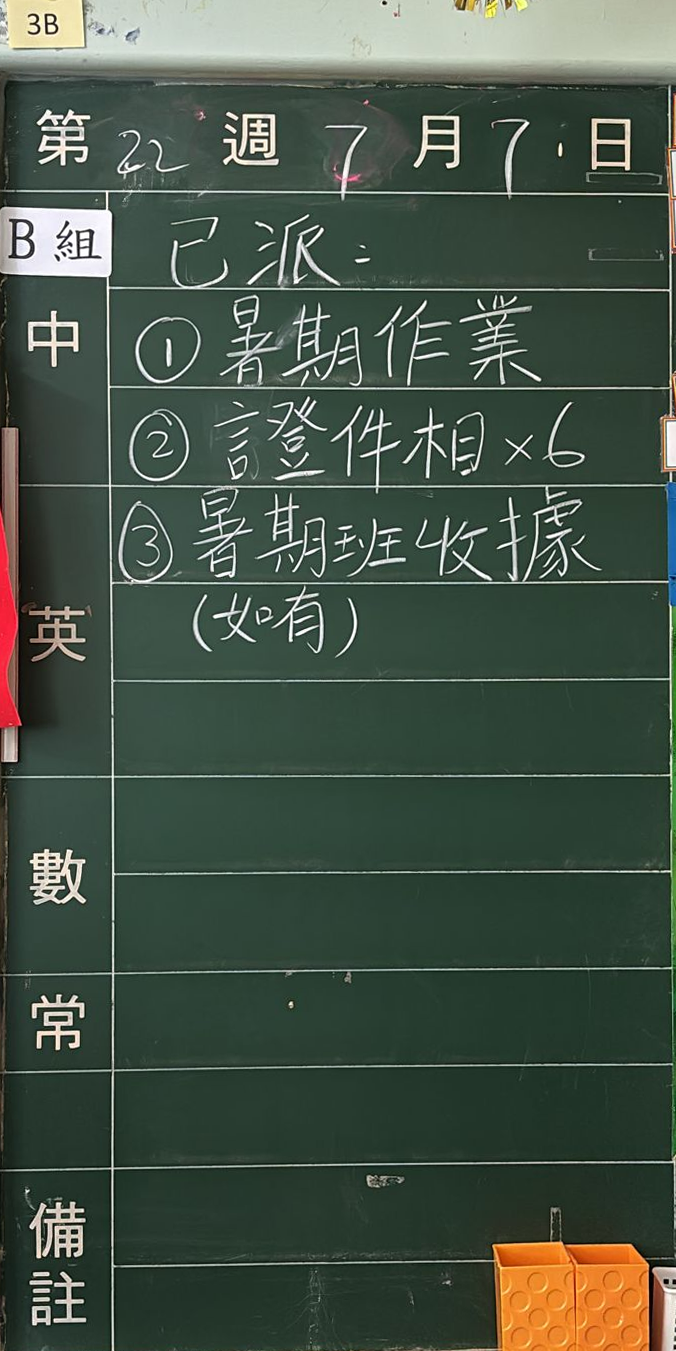 3B
第 22 週 7 月 7 日
B 組
已派：
中
① 暑期作業
② 證件相×6
③ 暑期班收據
英
(如有)
數
常
備註